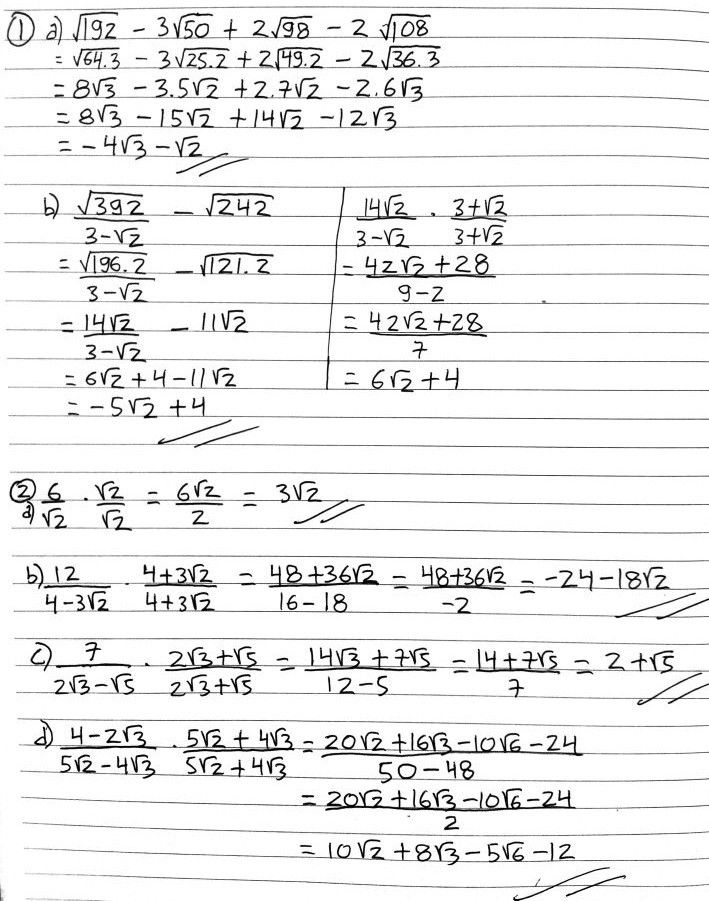 ① a) √192 - 3√50 + 2√98 - 2√108
= √64.3 - 3√25.2 + 2√49.2 - 2√36.3
= 8√3 - 3.5√2 + 2.7√2 - 2.6√3
= 8√3 - 15√2 + 14√2 - 12√3
= -4√3 - √2
b) √392 / 3-√2 - √242
= √196.2 / 3-√2 - √121.2
= 14√2 / 3-√2 - 11√2
= 6√2 + 4 - 11√2
= -5√2 + 4
14√2 / 3-√2 . 3+√2 / 3+√2
= 42√2 + 28 / 9-2
= 42√2 + 28 / 7
= 6√2 + 4
② a) 6/√2 . √2/√2 = 6√2/2 = 3√2
b) 12 / 4-3√2 . 4+3√2 / 4+3√2 = 48+36√2 / 16-18 = 48+36√2 / -2 = -24-18√2
c) 7 / 2√3-√5 . 2√3+√5 / 2√3+√5 = 14√3+7√5 / 12-5 = 14+7√5 / 7 = 2+√5
d) 4-2√3 / 5√2-4√3 . 5√2+4√3 / 5√2+4√3 = 20√2+16√3-10√6-24 / 50-48
= 20√2+16√3-10√6-24 / 2
= 10√2+8√3-5√6-12